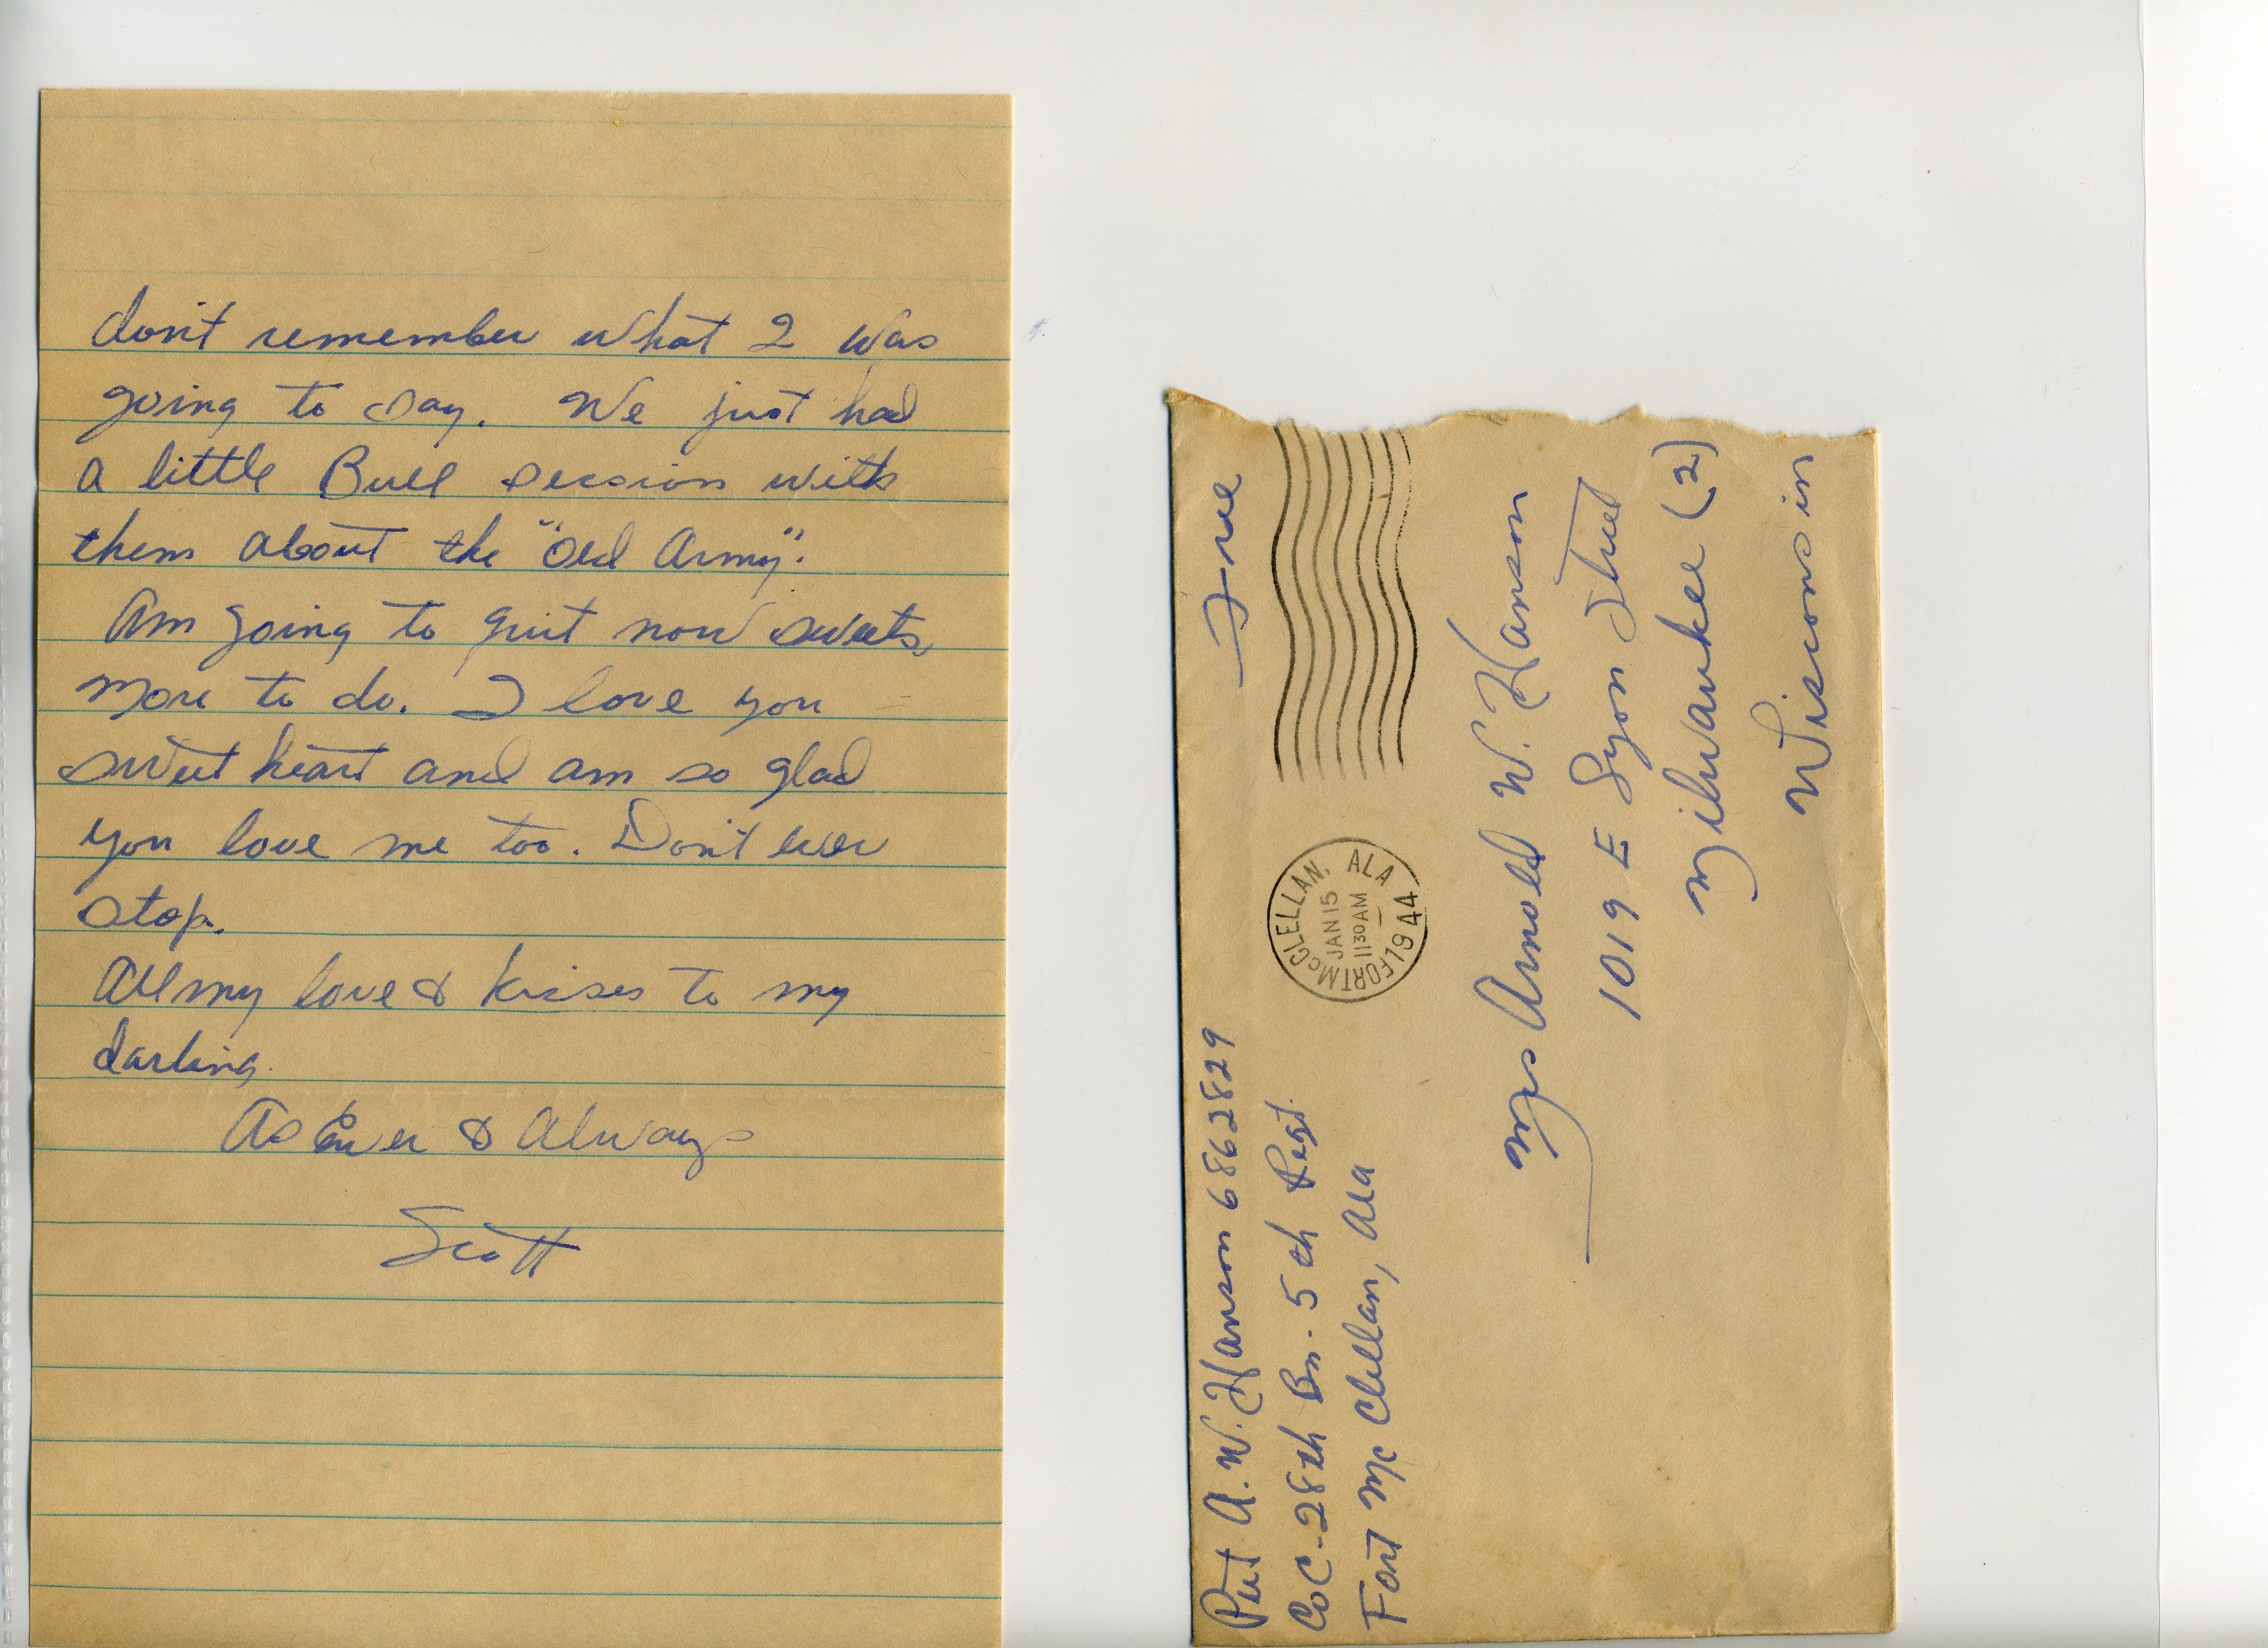 don't remember what I was
going to say. We just had
a little Bull session with
them about the "Old Army".
Am going to quit now sweets,
more to do. I love you
sweet heart and am so glad
you love me too. Don't ever
stop.
All my love & kisses to my
darling.
As Ever & Always
Scott
Pvt A. W. Hanson 6862829
Co C - 28th Bn. - 5th Regt.
Fort Mc Clellan, Ala
FORT McCLELLAN, ALA
JAN 15
11 30 AM
1944
Free
Mrs Arnold W. Hanson
1019 E Lyon Street
Milwaukee (2)
Wisconsin